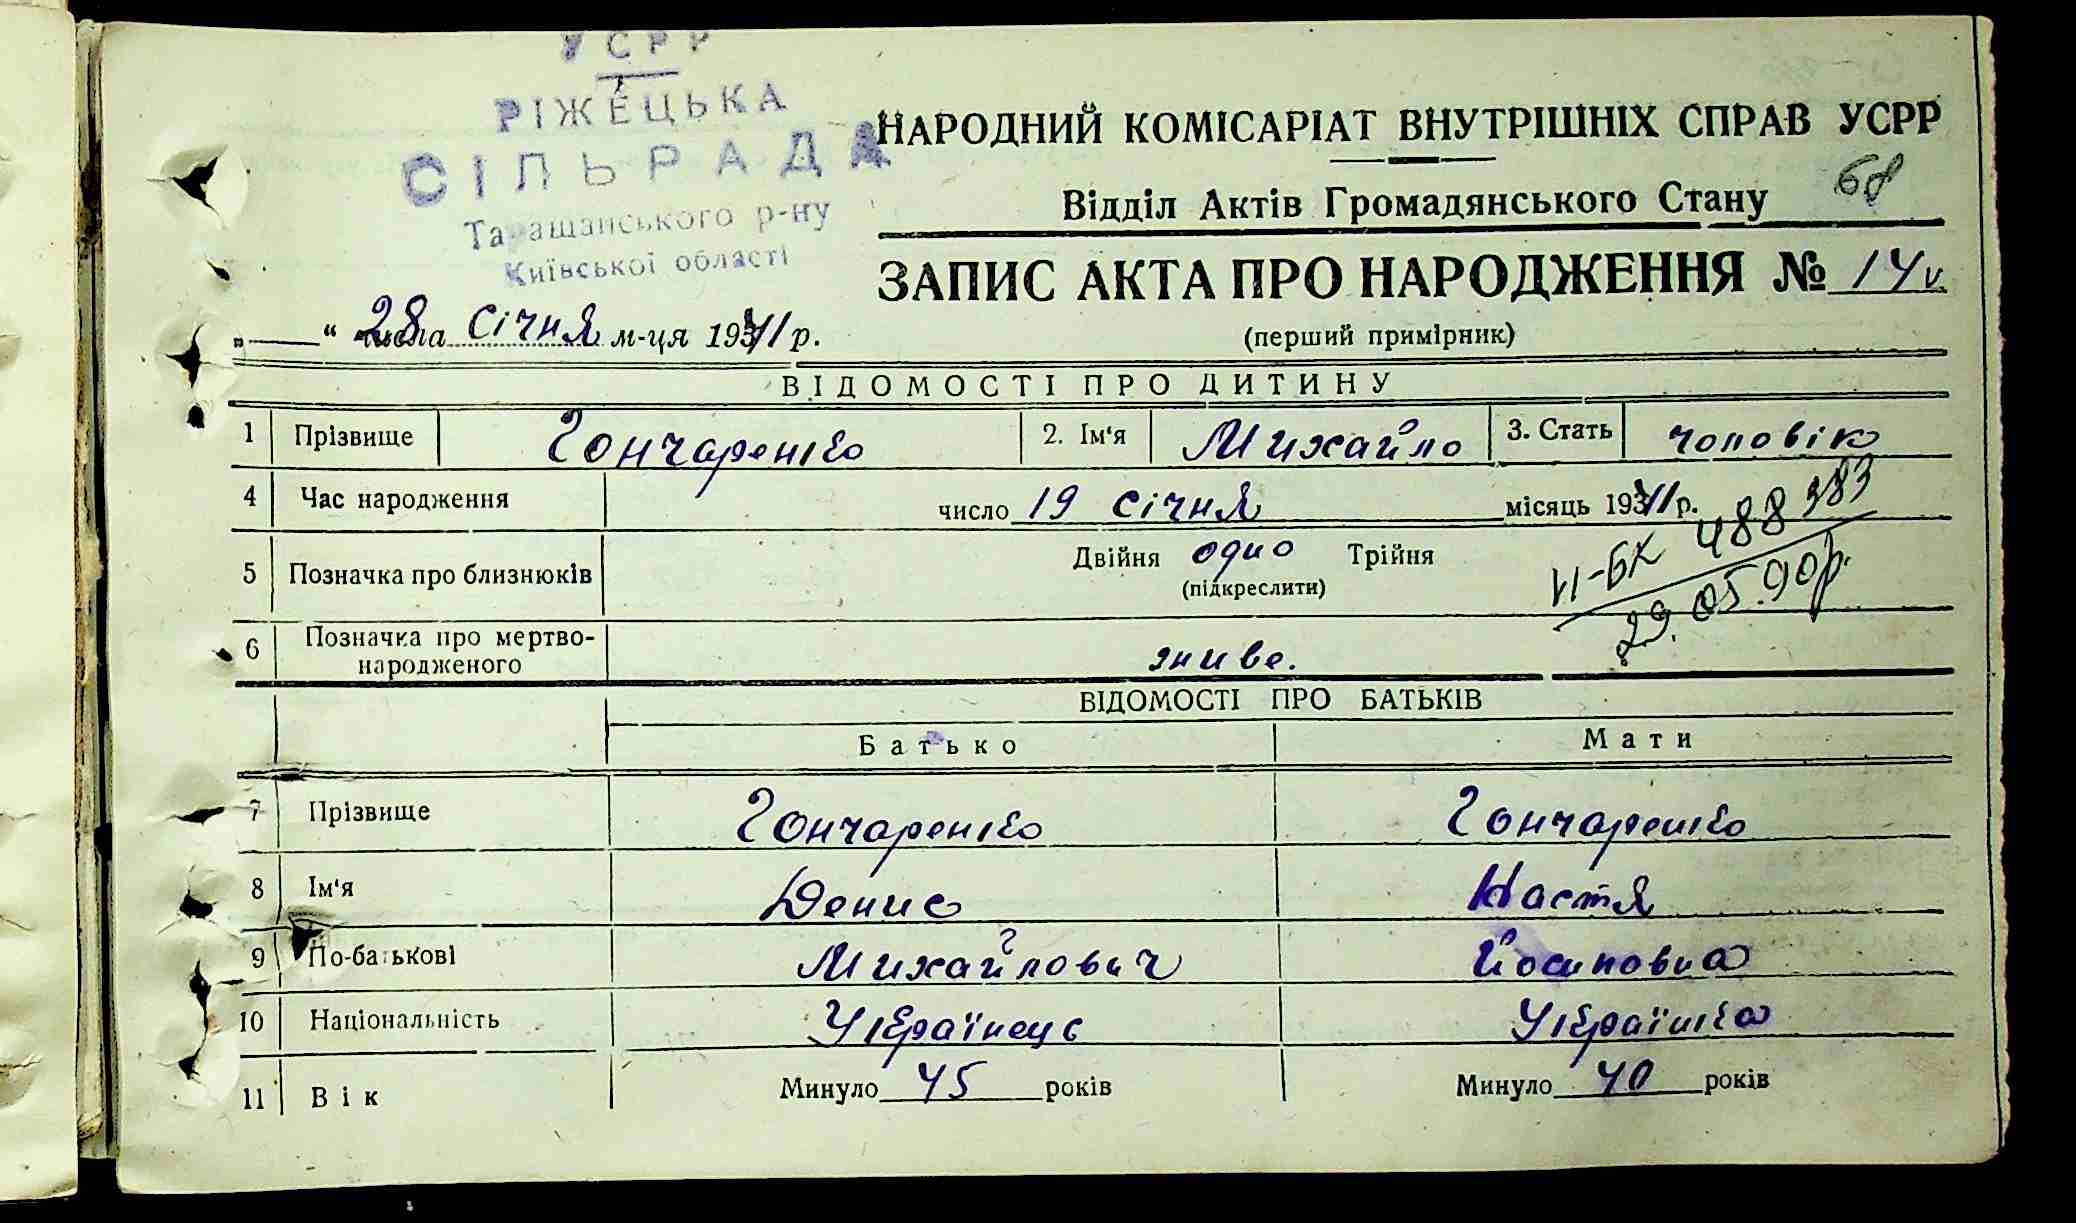 УСРР
РІЖЕЦЬКА
СІЛЬРАДА
Таращанського р-ну
Київської області
НАРОДНИЙ КОМІСАРІАТ ВНУТРІШНІХ СПРАВ УСРР
68
Відділ Актів Громадянського Стану
ЗАПИС АКТА ПРО НАРОДЖЕННЯ № 14
„ “ 28 числа Січня м-ця 1941 р.
(перший примірник)
ВІДОМОСТІ ПРО ДИТИНУ
1 Прізвище Гончаренко 2. Ім‘я Михайло 3. Стать чоловік
4 Час народження число 19 січня місяць 1941 р.
5 Позначка про близнюків Двійня одно Трійня
(підкреслити)
II-БК 488383
29.05.90р.
6 Позначка про мертво-
народженого живе.
ВІДОМОСТІ ПРО БАТЬКІВ
Батько Мати
7 Прізвище Гончаренко Гончаренко
8 Ім‘я Денис Настя
9 По-батькові Михайлович Йосиповна
10 Національність Українець Українка
11 Вік Минуло 45 років Минуло 40 років